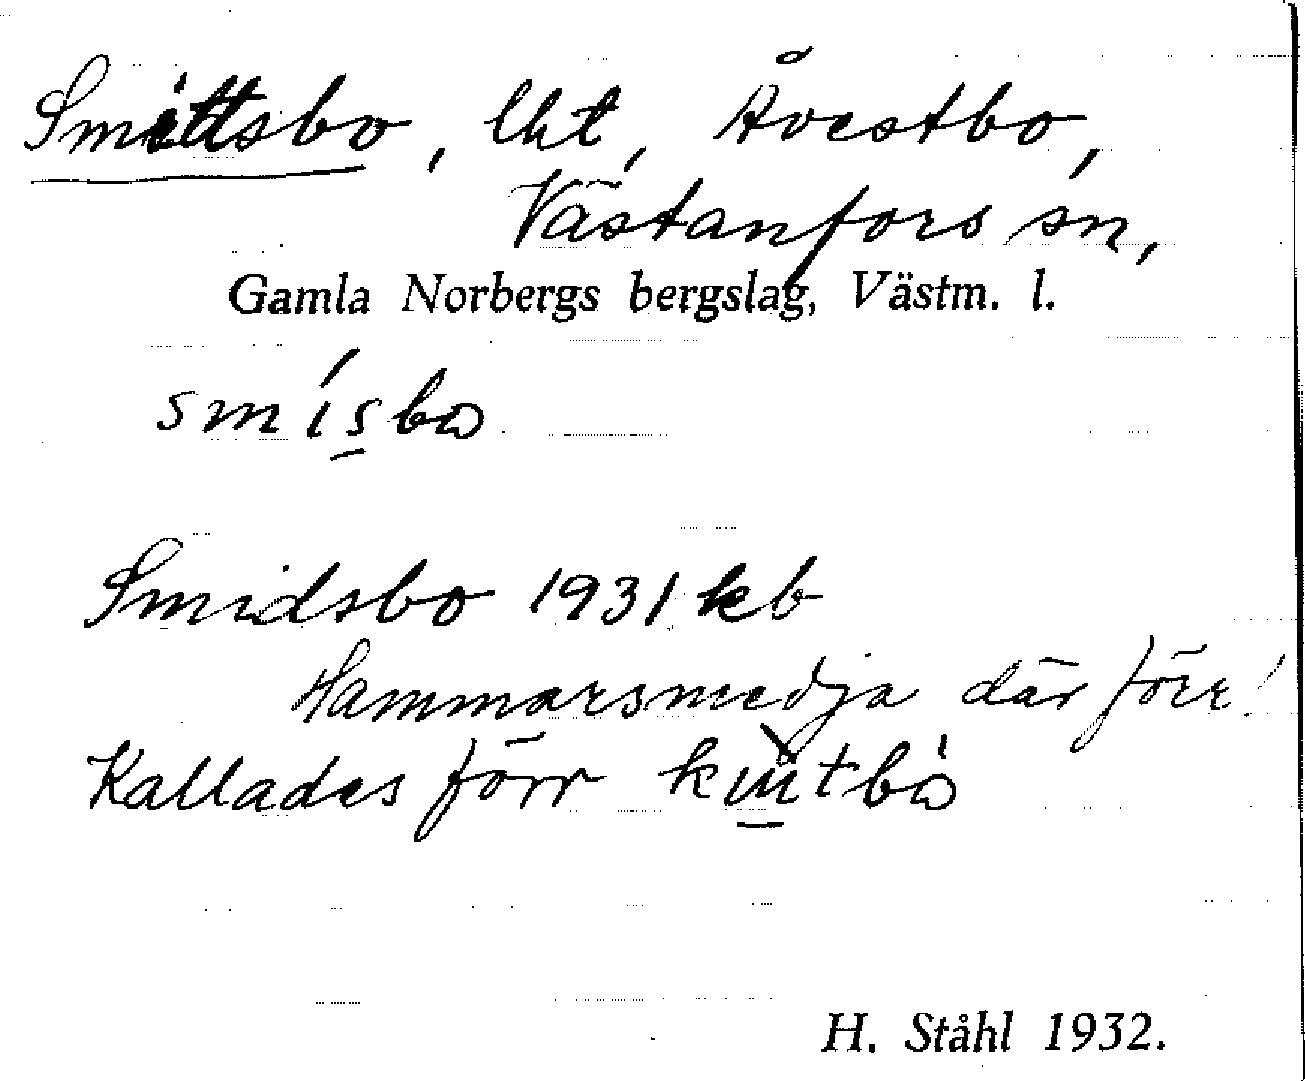 Smittsbo, lht, Åvestbo,
Västanfors sn,
Gamla Norbergs bergslag, Västm. l.
smísbo
Smidsbo 1931 kb
Hammarsmedja där förr!
Kallades förr
H. Ståhl 1932.